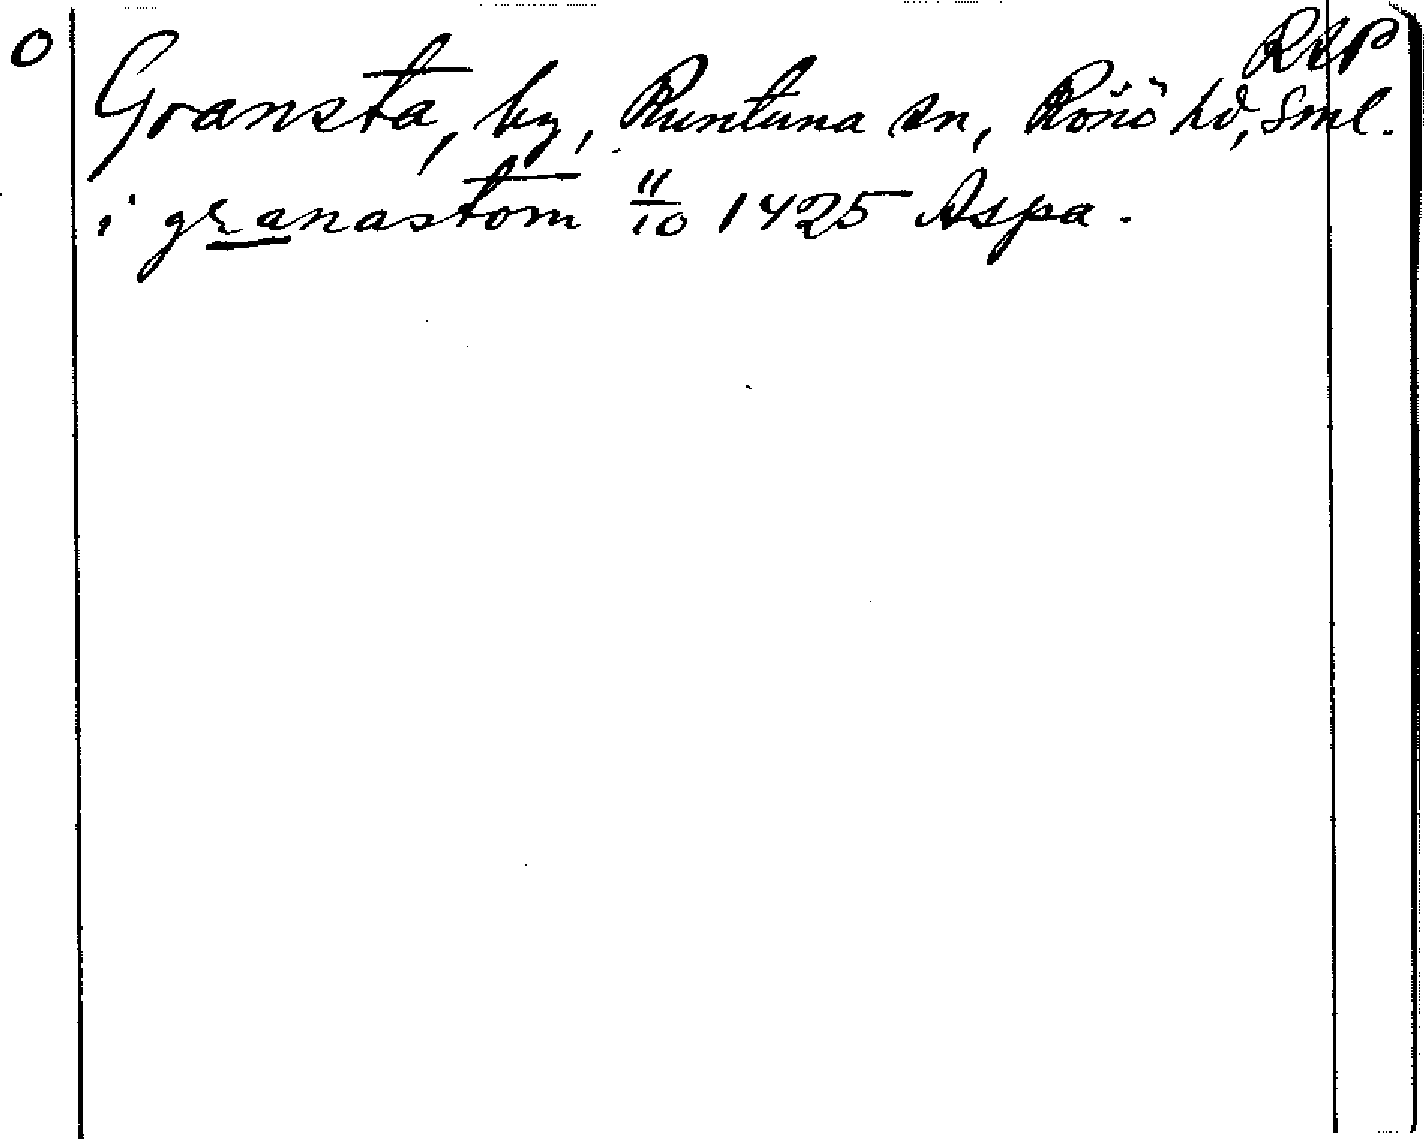 O
RAP
Gransta, by, Runtuna sn, Rönö hd, Sml.
i granastom 11/10 1425 Aspa.